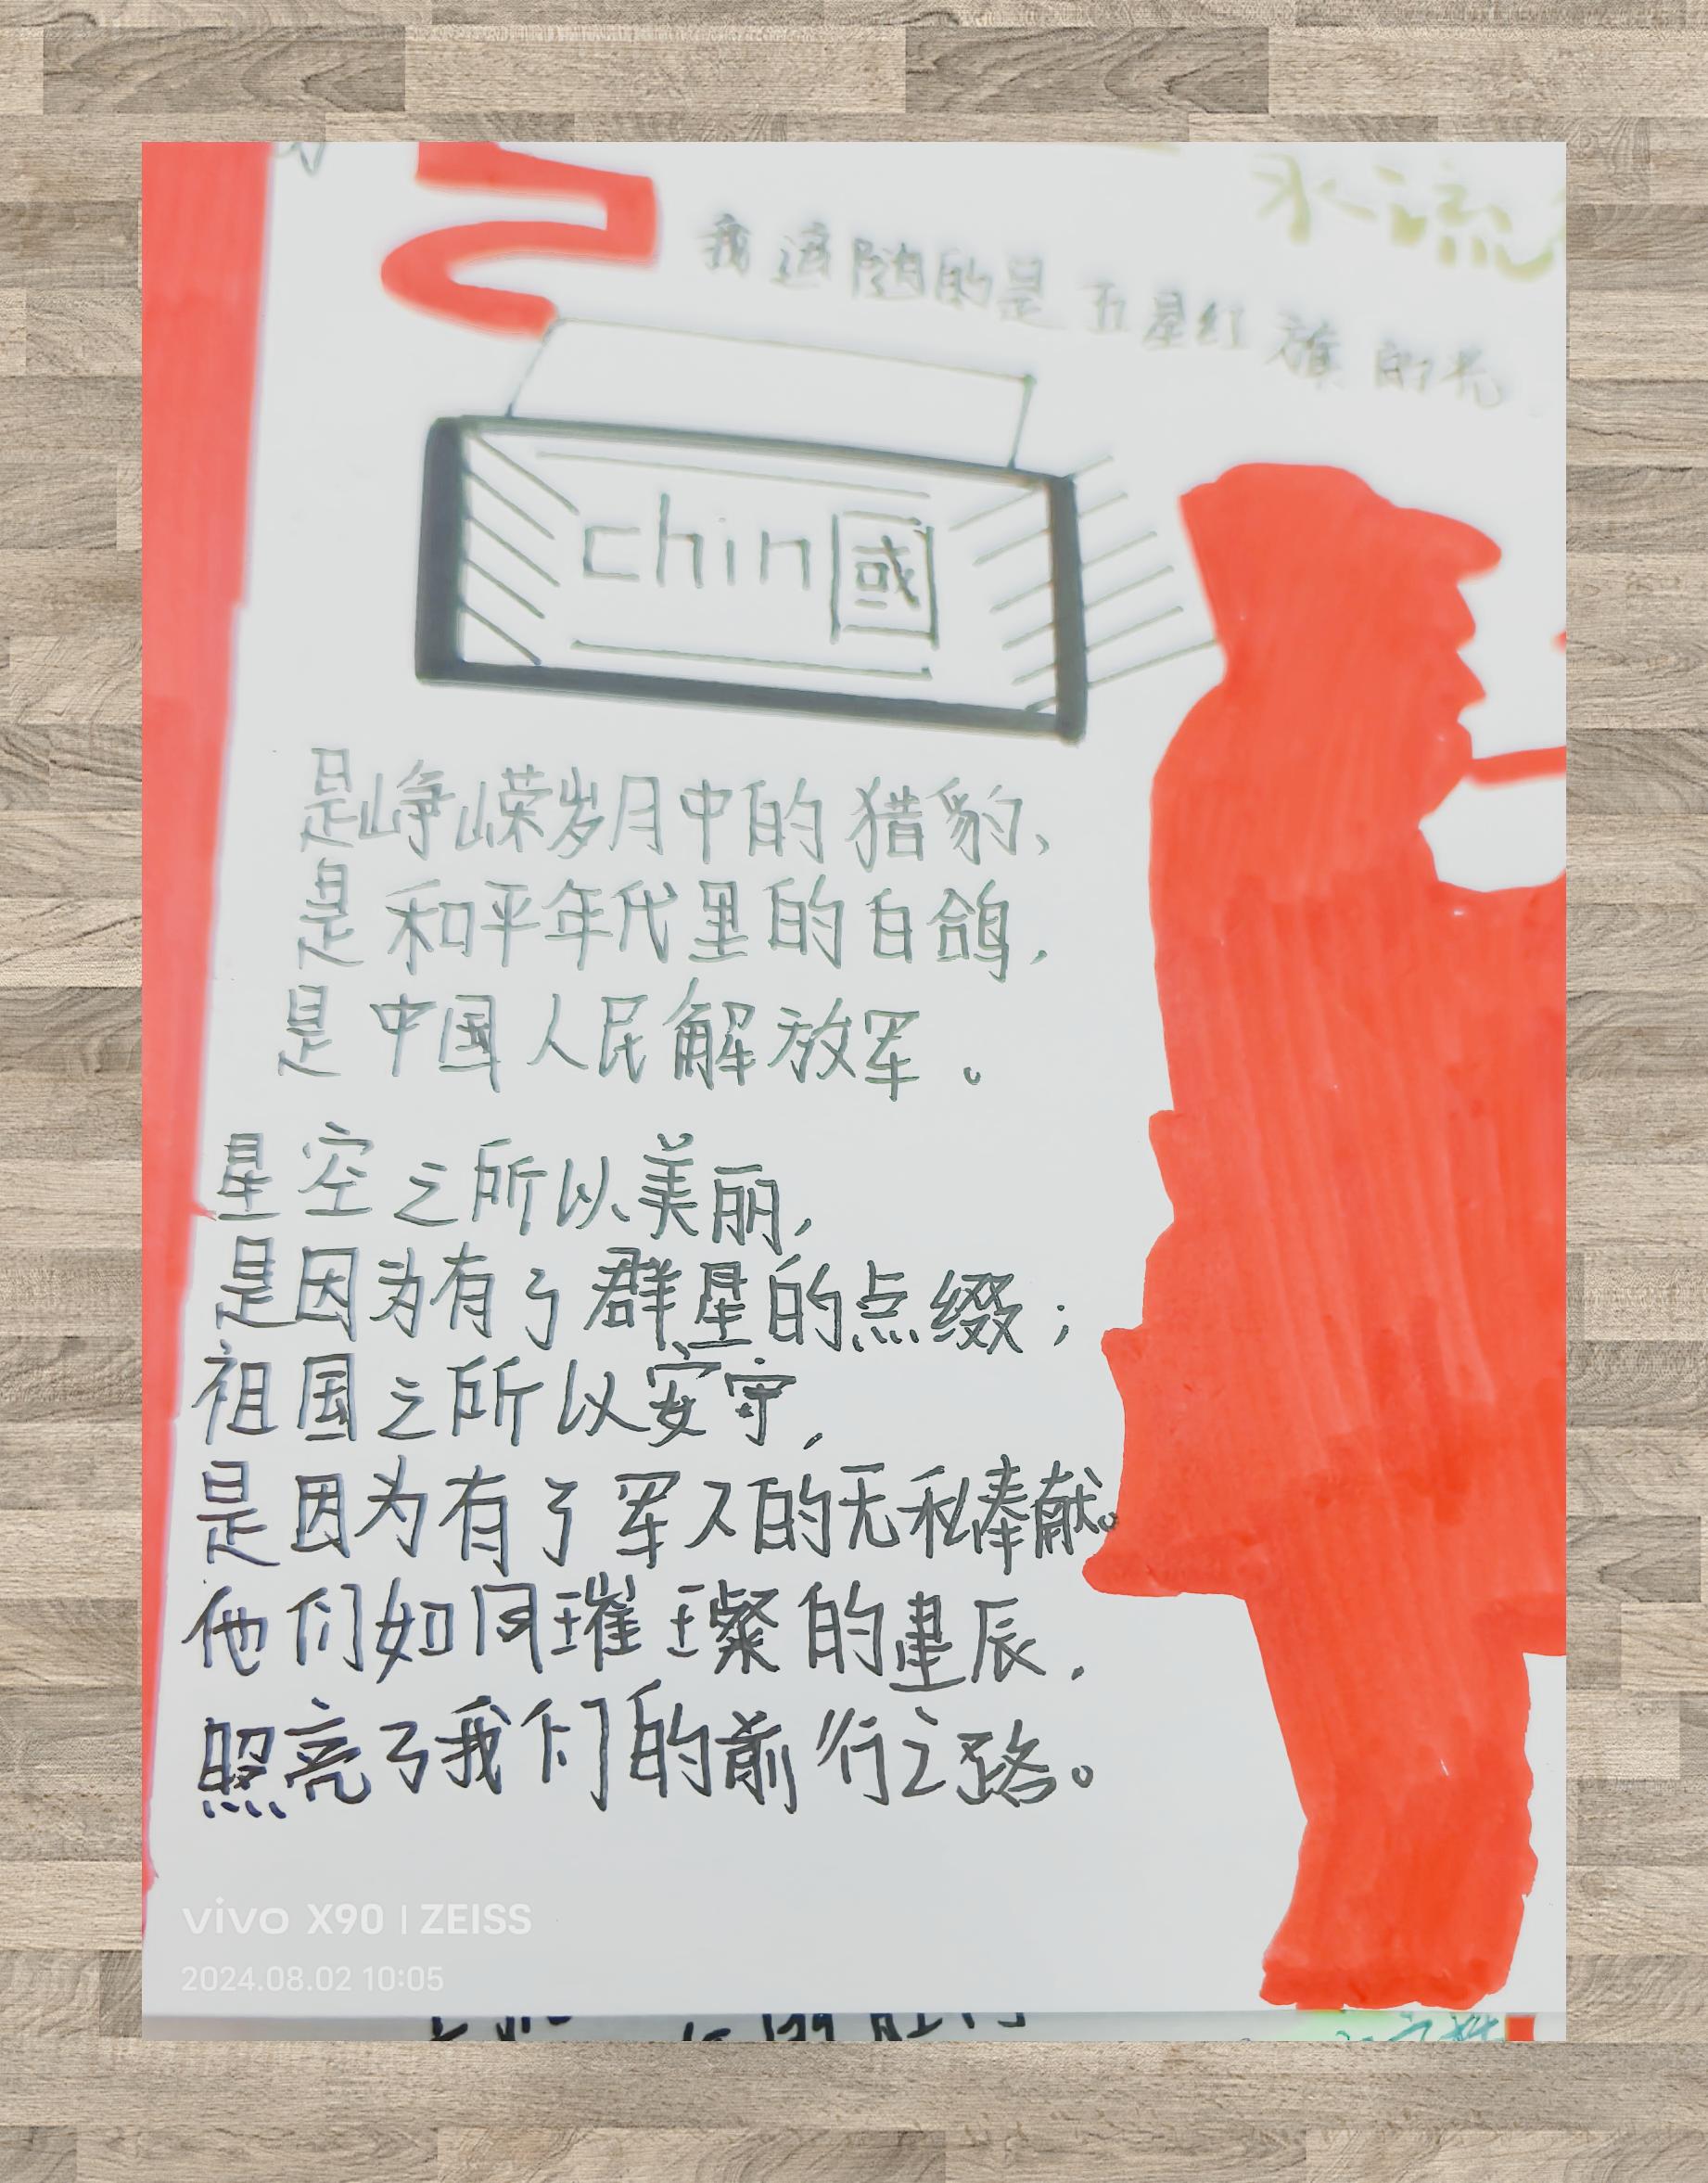 永流
我追随的是五星红旗的光
chin國
是峥嵘岁月中的猎豹、
是和平年代里的白鸽，
是中国人民解放军。
星空之所以美丽，
是因为有了群星的点缀；
祖国之所以安守，
是因为有了军人的无私奉献。
他们如同璀璨的星辰，
照亮了我们的前行之路。
vivo X90 | ZEISS
2024.08.02 10:05